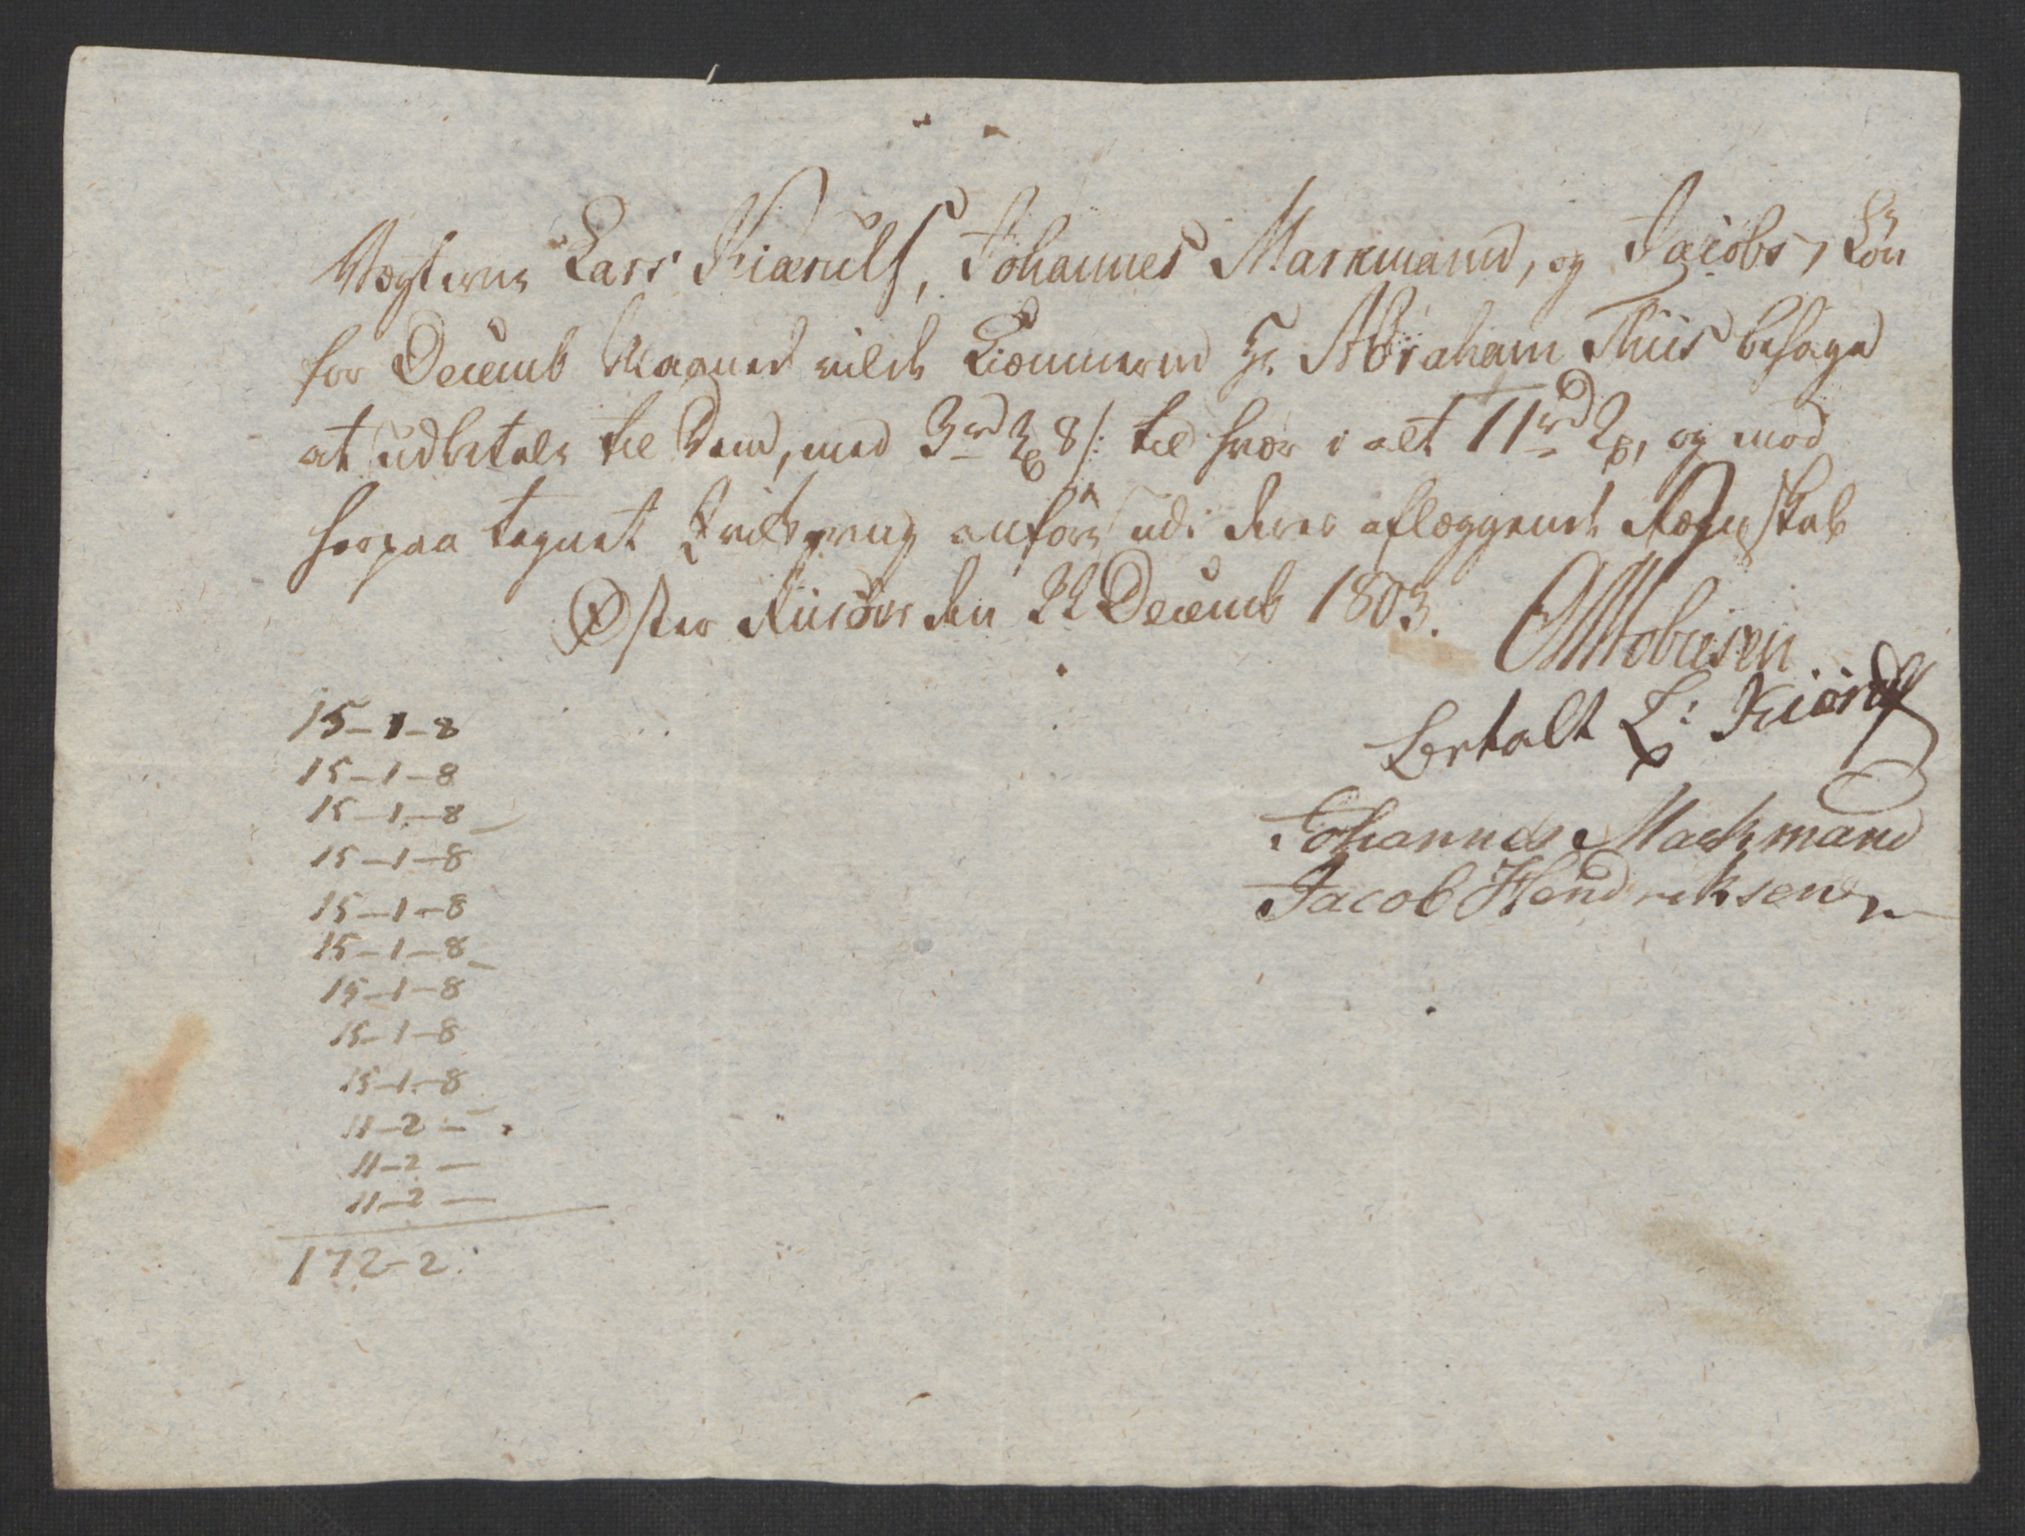 Vægterne Lars Kiærulf, Johannes Markmand, og Jacobs, Løn
for Decemb Maaned vilde Kiæmneren Hr Abraham Thiis behage
at udbetale til Dem, med 3rd 3 8 s: til hver i alt 11rd 2, og mod
herpaa tegnet Qvitering anføre udi deres aflæggende Regnskab
Øster Riisøer den 22 Decemb 1803.
Betalt L: Kiærulf
Johannes Markmand
Jacob Hendriksen
15-1-8
15-1-8
15-1-8
15-1-8
15-1-8
15-1-8
15-1-8
15-1-8
15-1-8
11-2-
11-2-
11-2-
172-2.